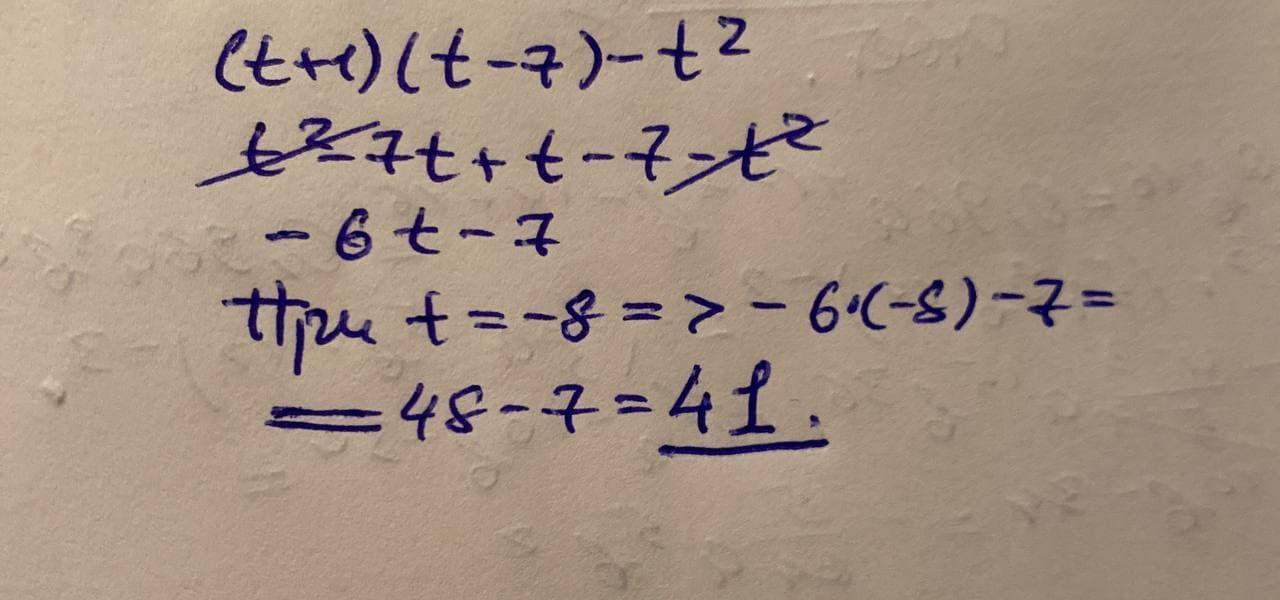 (t+1)(t-7)-t²
t²-7t+t-7-t²
-6t-7
При t=-8=>-6·(-8)-7=
=48-7=41.